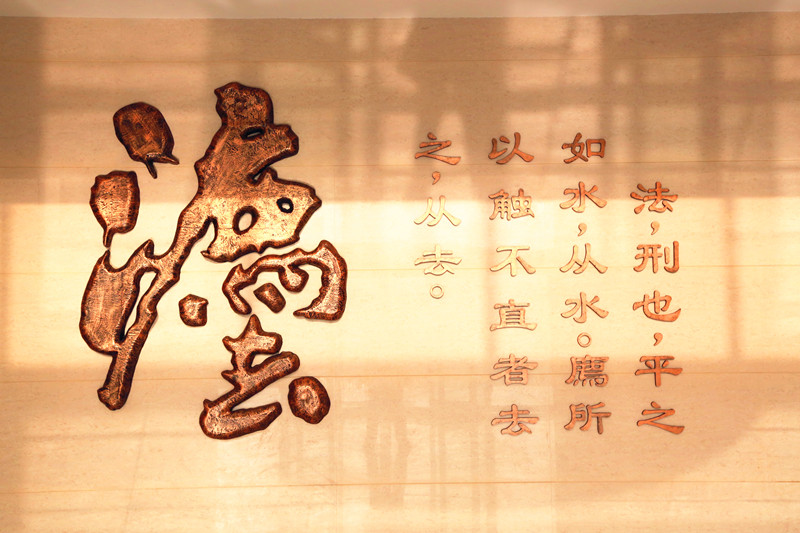 灋
法，刑也，平之
如水，从水。廌所
以触不直者去
之，从去。